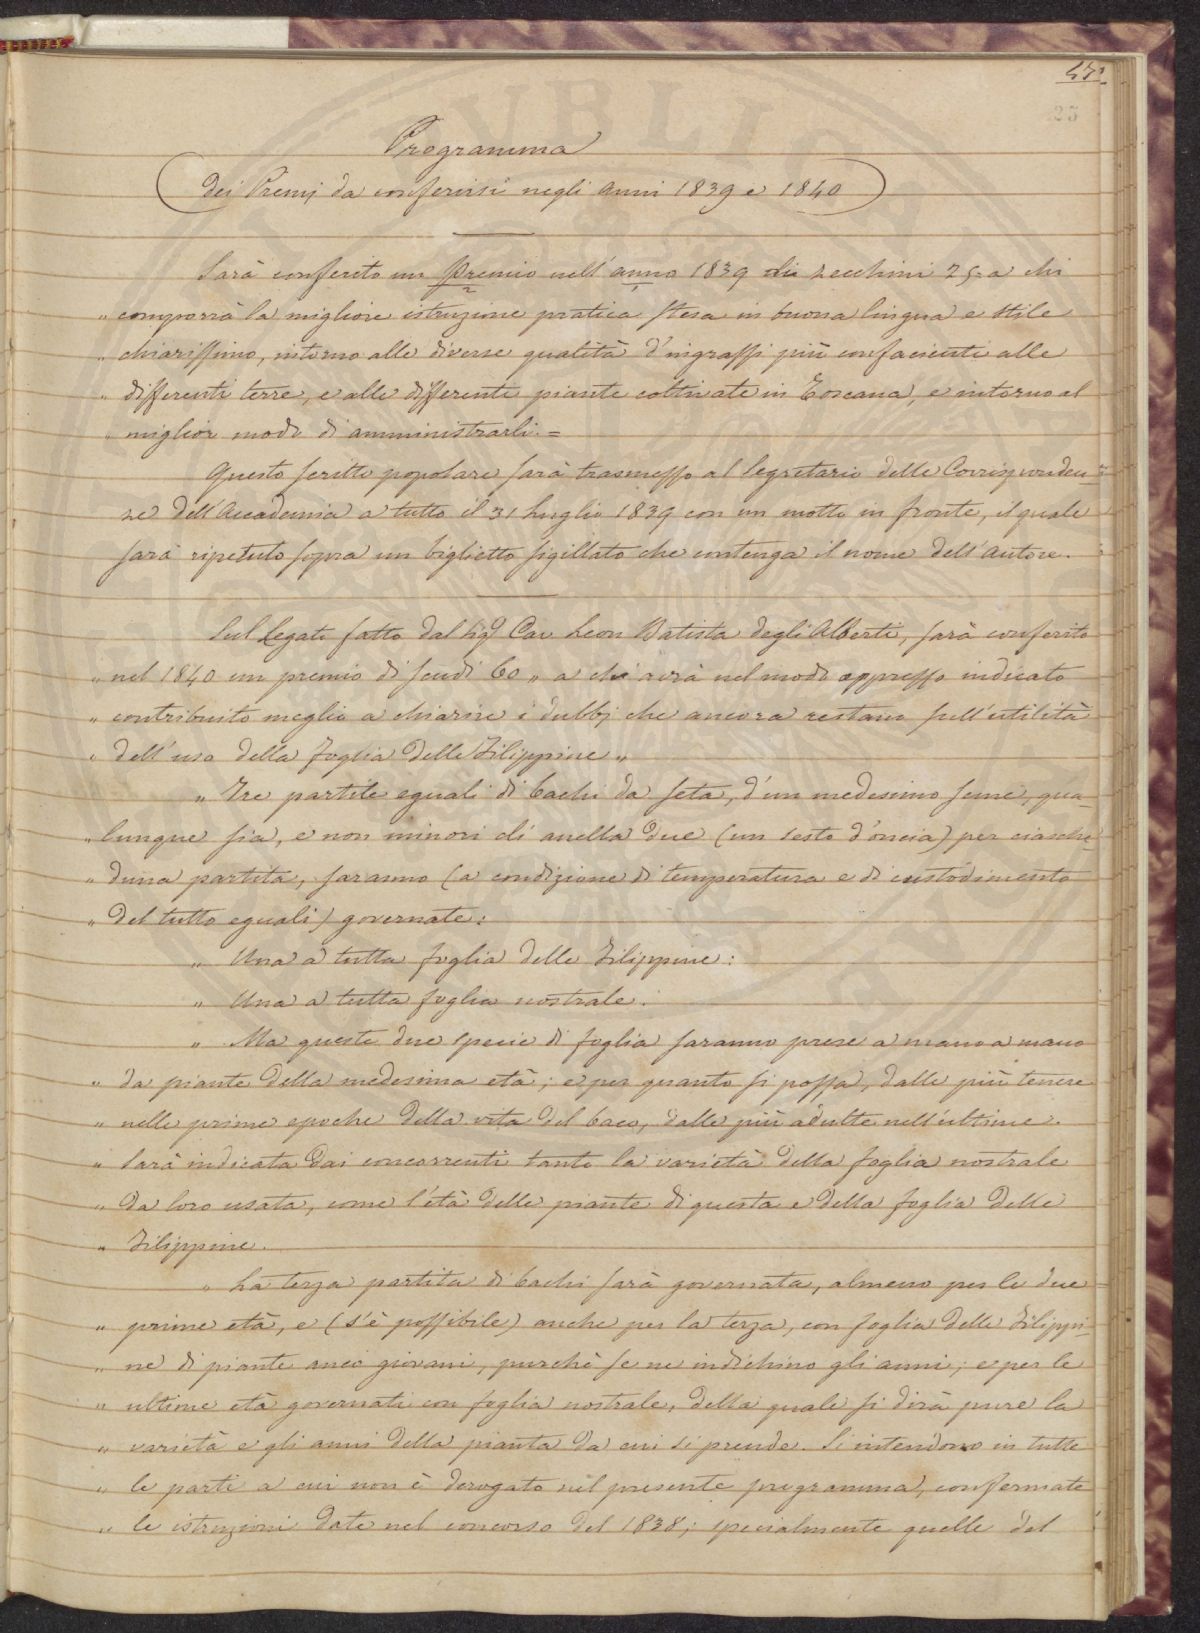 47.
25
Programma
Dei Premj da conferirsi negli anni 1839 e 1840
Sarà conferito un Premio nell'anno 1839 di zecchini 25 = a chi
" comporrà la migliore istruzione pratica stesa in buona lingua e stile
" chiarissimo, intorno alle diverse qualità d'ingrassi più confacienti alle
" differenti terre, e alle differenti piante coltivate in Toscana, e intorno al
" miglior modo di amministrarli. =
Questo scritto popolare sarà trasmesso al Segretario delle Corrisponden=
ze dell'Accademia a tutto il 31 Luglio 1839 con un motto in fronte, il quale
sarà ripetuto sopra un biglietto sigillato che contenga il nome dell'autore.
Sul Legato fatto dal Sigr Cav Leon Batista degli Alberti, sarà conferito
" nel 1840 un premio di scudi 60 " a chi avrà nel modo appresso indicato
" contribuito meglio a chiarire i dubbj che ancora restano sull'utilità
" dell'uso della foglia delle Filippine "
" Tre partite eguali di bachi da seta, d'un medesimo seme, qua-
" lunque sia, e non minori di anella due (un sesto d'oncia) per ciasche-
" duna partita, saranno (a condizione di temperatura e di custodimento
" del tutto eguali) governate:
" Una a tutta foglia delle Filippine:
" Una a tutta foglia nostrale.
" Ma queste due specie di foglia saranno prese a mano a mano
" da piante della medesima età; e per quanto si possa, dalle più tenere
" nelle prime epoche della vita del baco, dalle più adulte nell'ultime.
" Sarà indicata dai concorrenti tanto la varietà della foglia nostrale
" da loro usata, come l'età delle piante di questa e della foglia delle
" Filippine.
" La terza partita di bachi sarà governata, almeno per le due
" prime età, e (s'è possibile) anche per la terza, con foglia delle Filippi-
" ne di piante anco giovani, purchè se ne indichino gli anni; e per le
" ultime età governati con foglia nostrale, della quale si dirà pure la
" varietà e gli anni della pianta da cui si prende. Si intendono in tutte
" le parti a cui non è derogato nel presente programma, confermate
" le istruzioni date nel concorso del 1838; specialmente quelle del